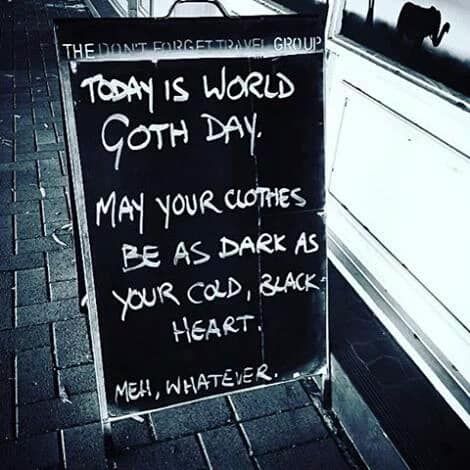 THE DON'T FORGET TRAVEL GROUP
TODAY IS WORLD
GOTH DAY.
MAY YOUR CLOTHES
BE AS DARK AS
YOUR COLD, BLACK
HEART.
MEH, WHATEVER.